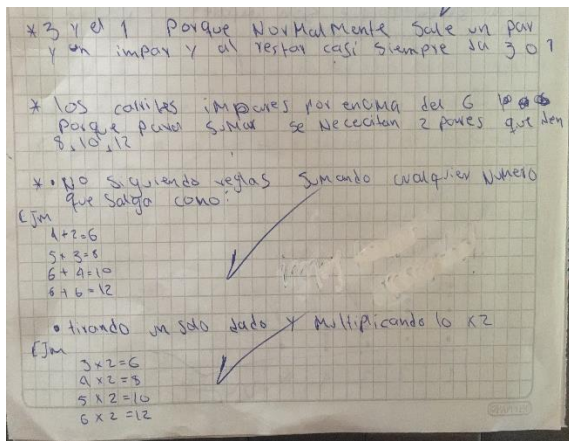 * 3 y el 1 Porque Normalmente Sale un par
y un impar y al restar casi siempre da 3 o 1
* Los carriles impares por encima del 6
Porque para sumar se Nececitan 2 pares que den
8, 10, 12
* • No Siguiendo reglas Sumando cualquier Numero
que salga como:
Ejm
4+2=6
5+3=8
6+4=10
6+6=12
• tirando un solo dado y Multiplicando lo x2
Ejm
3x2=6
4x2=8
5x2=10
6x2=12